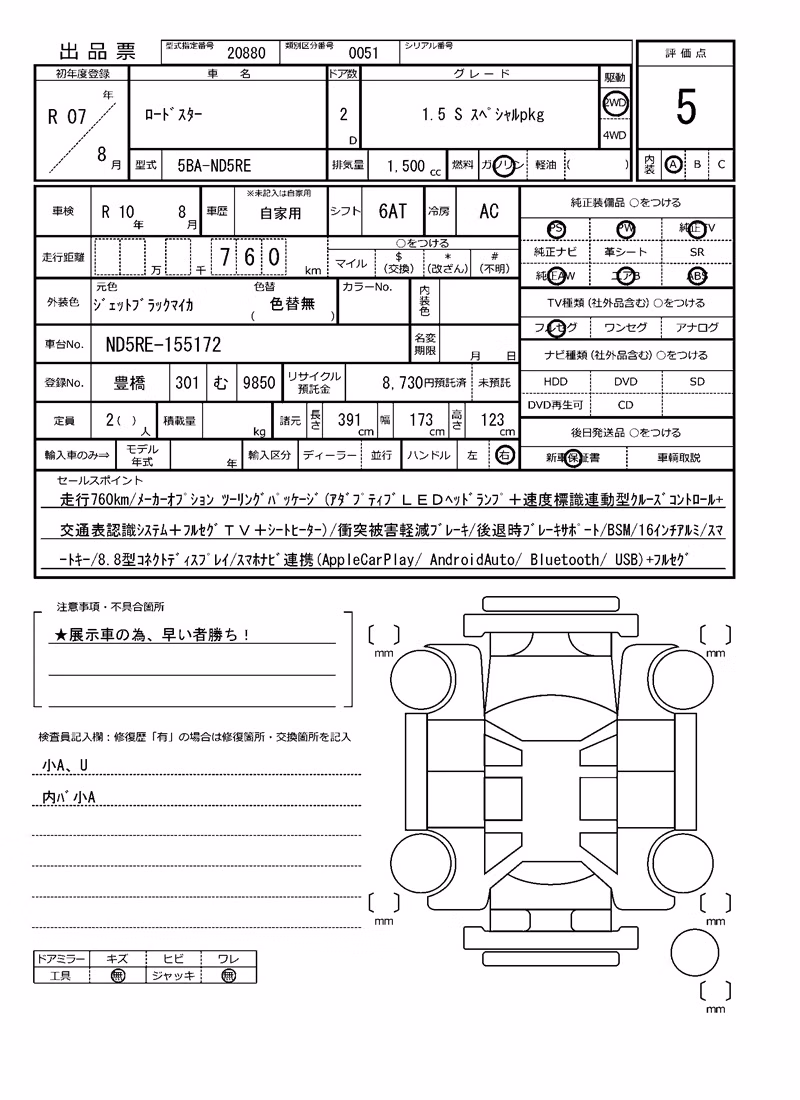 出品票 型式指定番号 20880 類別区分番号 0051 シリアル番号
評価点
5
内装 A B C
初年度登録 車名 ドア数 グレード 駆動
R 07 年 8 月 ﾛｰﾄﾞｽﾀｰ 2 D 1.5 S ｽﾍﾟｼｬﾙpkg 2WD
4WD
型式 5BA-ND5RE 排気量 1,500 cc 燃料 ガソリン 軽油 ( )
車検 R 10 年 8 月 車歴 ※未記入は自家用 自家用 シフト 6AT 冷房 AC
走行距離 万 千 7 6 0 km ○をつける
マイル $(交換) *(改ざん) #(不明)
外装色 元色 ｼﾞｪｯﾄﾌﾞﾗｯｸﾏｲｶ 色替 ( 色替無 ) カラーNo. 内装色
車台No. ND5RE-155172 名変期限 月 日
登録No. 豊橋 301 む 9850 リサイクル預託金 8,730円預託済 未預託
定員 2( ) 人 積載量 kg 諸元 長さ 391 cm 幅 173 cm 高さ 123 cm
輸入車のみ⇒ モデル年式 年 輸入区分 ディーラー 並行 ハンドル 左 右
純正装備品 ○をつける
PS PW 純正TV
純正ナビ 革シート SR
純正AW エアB ABS
TV種類(社外品含む)○をつける
フルセグ ワンセグ アナログ
ナビ種類(社外品含む)○をつける
HDD DVD SD
DVD再生可 CD
後日発送品 ○をつける
新車保証書 車輌取説
セールスポイント
走行760km/ﾒｰｶｰｵﾌﾟｼｮﾝ ﾂｰﾘﾝｸﾞﾊﾟｯｹｰｼﾞ(ｱﾀﾞﾌﾟﾃｨﾌﾞＬＥＤﾍｯﾄﾞﾗﾝﾌﾟ＋速度標識連動型ｸﾙｰｽﾞｺﾝﾄﾛｰﾙ+
交通表認識ｼｽﾃﾑ＋ﾌﾙｾｸﾞＴＶ＋ｼｰﾄﾋｰﾀｰ)/衝突被害軽減ﾌﾞﾚｰｷ/後退時ﾌﾞﾚｰｷｻﾎﾟｰﾄ/BSM/16ｲﾝﾁｱﾙﾐ/ｽﾏ
ｰﾄｷｰ/8.8型ｺﾈｸﾄﾃﾞｨｽﾌﾟﾚｲ/ｽﾏﾎﾅﾋﾞ連携(AppleCarPlay/ AndroidAuto/ Bluetooth/ USB)+ﾌﾙｾｸﾞ
注意事項・不具合箇所
★展示車の為、早い者勝ち！
検査員記入欄：修復歴「有」の場合は修復箇所・交換箇所を記入
小A、U
内ﾊﾞ小A
ドアミラー キズ ヒビ ワレ
工具 無 ジャッキ 無
mm mm
mm mm
mm